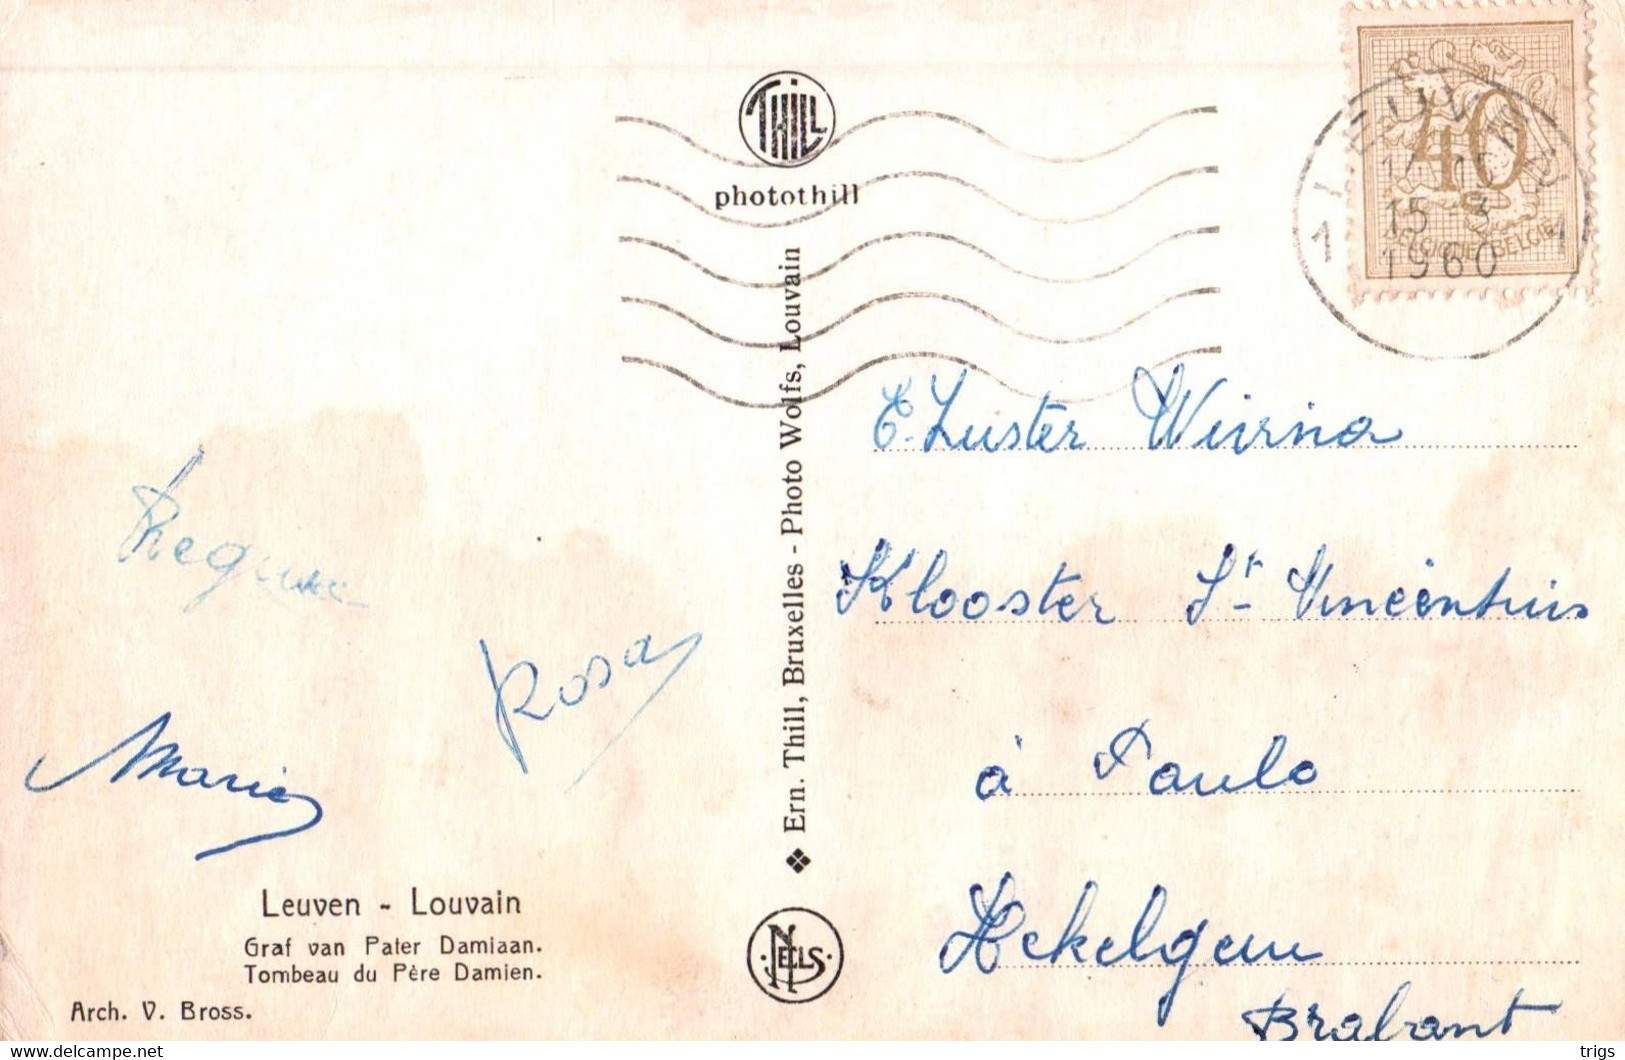 THILL
photothill
LEUVEN
40
14-15
15-3
1960
1 1
BELGIQUE-BELGIË
Ern. Thill, Bruxelles - Photo Wolfs, Louvain
NELLS
E. Zuster Wivina
Klooster St Vincentius
à Paulo
Hekelgem
Brabant
Rosa
Maria
Leuven - Louvain
Graf van Pater Damiaan.
Tombeau du Père Damien.
Arch. V. Bross.
https://www.delcampe.net
trigs